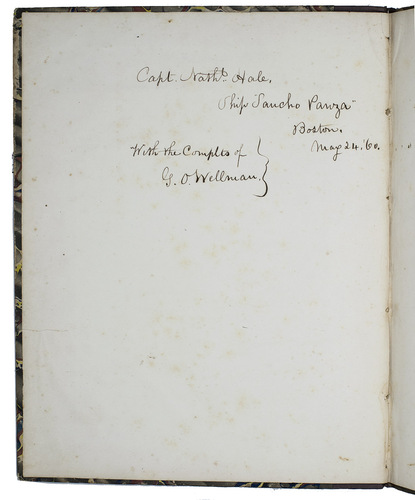 Capt. Nathl. Hale,
Ship "Sancho Panza"
Boston.
May 24. '60.
With the Complts of
G. O. Wellman,